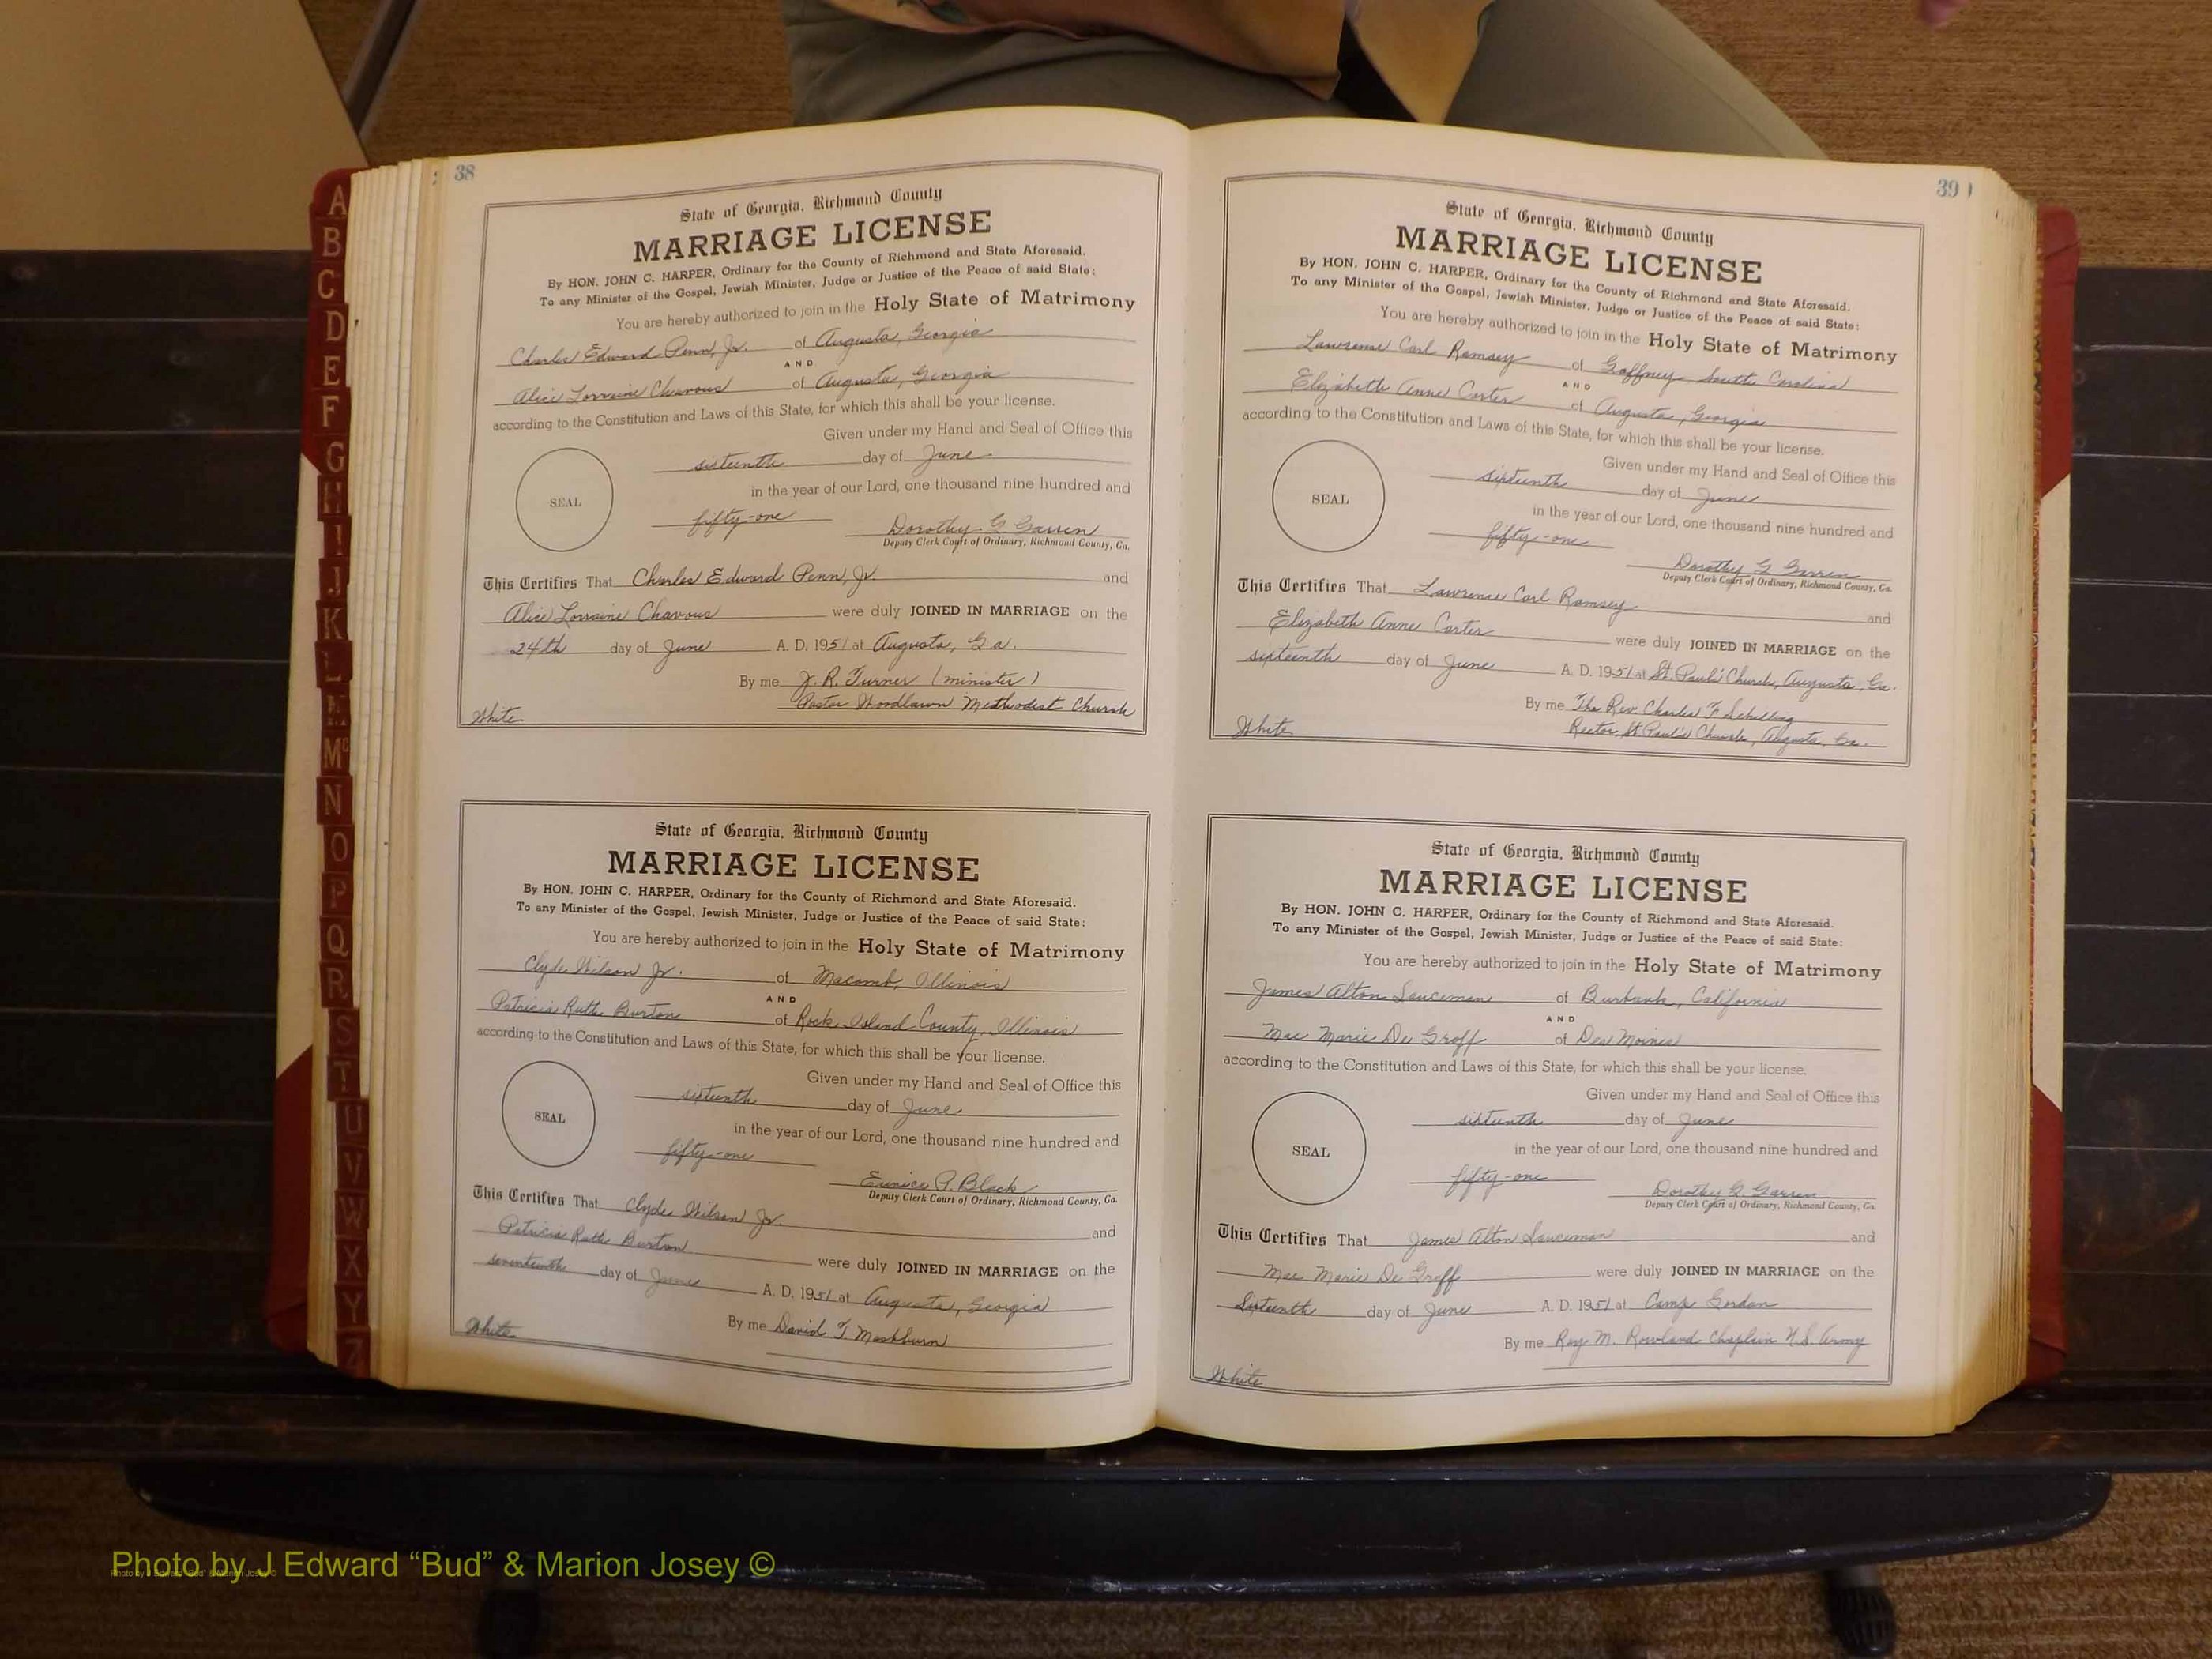 A
B
C
D
E
F
G
H
I
J
K
L
M
Mc
N
O
P
Q
R
S
T
U
V
W
X
Y
Z
38
State of Georgia, Richmond County
MARRIAGE LICENSE
By HON. JOHN C. HARPER, Ordinary for the County of Richmond and State Aforesaid.
To any Minister of the Gospel, Jewish Minister, Judge or Justice of the Peace of said State:
You are hereby authorized to join in the Holy State of Matrimony
Charles Edward Penn, Jr. of Augusta, Georgia
AND
Alice Lorraine Chavous of Augusta, Georgia
according to the Constitution and Laws of this State, for which this shall be your license.
Given under my Hand and Seal of Office this
sixteenth day of June
SEAL
in the year of our Lord, one thousand nine hundred and
fifty-one Dorothy G. Garren
Deputy Clerk Court of Ordinary, Richmond County, Ga.
This Certifies That Charles Edward Penn, Jr. and
Alice Lorraine Chavous were duly JOINED IN MARRIAGE on the
24th day of June A. D. 1951 at Augusta, Ga.
By me J. R. Turner (minister)
Pastor Woodlawn Methodist Church
White
State of Georgia, Richmond County
MARRIAGE LICENSE
By HON. JOHN C. HARPER, Ordinary for the County of Richmond and State Aforesaid.
To any Minister of the Gospel, Jewish Minister, Judge or Justice of the Peace of said State:
You are hereby authorized to join in the Holy State of Matrimony
Clyde Wilson Jr. of Macomb, Illinois
AND
Patricia Ruth Burton of Rock Island County, Illinois
according to the Constitution and Laws of this State, for which this shall be your license.
Given under my Hand and Seal of Office this
sixteenth day of June
SEAL
in the year of our Lord, one thousand nine hundred and
fifty-one Eunice P. Black
Deputy Clerk Court of Ordinary, Richmond County, Ga.
This Certifies That Clyde Wilson Jr. and
Patricia Ruth Burton were duly JOINED IN MARRIAGE on the
seventeenth day of June A. D. 1951 at Augusta, Georgia
By me David T. Mashburn
White
39
State of Georgia, Richmond County
MARRIAGE LICENSE
By HON. JOHN C. HARPER, Ordinary for the County of Richmond and State Aforesaid.
To any Minister of the Gospel, Jewish Minister, Judge or Justice of the Peace of said State:
You are hereby authorized to join in the Holy State of Matrimony
Lawrence Carl Ramsey of Gaffney South Carolina
AND
Elizabeth Anne Carter of Augusta, Georgia
according to the Constitution and Laws of this State, for which this shall be your license.
Given under my Hand and Seal of Office this
sixteenth day of June
SEAL
in the year of our Lord, one thousand nine hundred and
fifty-one Dorothy G. Garren
Deputy Clerk Court of Ordinary, Richmond County, Ga.
This Certifies That Lawrence Carl Ramsey and
Elizabeth Anne Carter were duly JOINED IN MARRIAGE on the
sixteenth day of June A. D. 1951 at St. Paul's Church, Augusta, Ga.
By me The Rev. Charles F. Schilling
Rector, St Paul's Church, Augusta, Ga.
White
State of Georgia, Richmond County
MARRIAGE LICENSE
By HON. JOHN C. HARPER, Ordinary for the County of Richmond and State Aforesaid.
To any Minister of the Gospel, Jewish Minister, Judge or Justice of the Peace of said State:
You are hereby authorized to join in the Holy State of Matrimony
James Alton Sauceman of Burbank, California
AND
Mae Marie De Groff of Des Moines
according to the Constitution and Laws of this State, for which this shall be your license.
Given under my Hand and Seal of Office this
sixteenth day of June
SEAL
in the year of our Lord, one thousand nine hundred and
fifty-one Dorothy G. Garren
Deputy Clerk Court of Ordinary, Richmond County, Ga.
This Certifies That James Alton Sauceman and
Mae Marie De Groff were duly JOINED IN MARRIAGE on the
Sixteenth day of June A. D. 1951 at Camp Gordon
By me Ray M. Rowland Chaplain U.S. Army
White
Photo by J Edward "Bud" & Marion Josey ©
Photo by J Edward "Bud" & Marion Josey ©